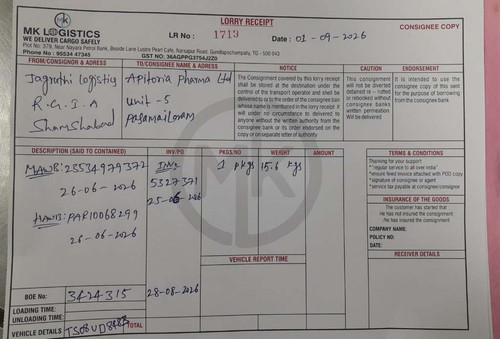 LORRY RECEIPT
CONSIGNEE COPY
MK LOGISTICS
WE DELIVER CARGO SAFELY
LR No : 1713
Date : 01-09-2026
Plot No: 379, Near Nayara Petrol Bank, Beside Lane Lustre Pearl Cafe, Narsapur Road, Gundlapochampally, TG - 500 043
Phone No : 95534 47345
GST NO: 36AGPPG3754J2Z0
FROM/CONSIGNOR & ADDRESS
Jagruthi logistiq
R.G.I.A
Shamshabad
TO/CONSIGNEE NAME & ADDRESS
Apitoria Pharma Ltd
unit - 5
pasamailaram
NOTICE
The Consignment covered by this lorry receipt
shall be stored at the destination under the
control of the transport operator and shall be
delivered to or to the order of the consignee ban
whose name is mentioned in the lorry receipt. It
will under no circumstance be delivered to
anyone without the written authority from the
consignee bank or its order endorsed on the
copy or separate letter of authority
CAUTION
This consignment
will not be diverted
detained re - routted
or rebooked without
consignee banks
written permission
Will be delivered
ENDORSEMENT
It is intended to use the
consignee copy of this sent
for the purpose of borrowing
from the consignee bank.
DESCRIPTION (SAID TO CONTAINED)
INV/PO
PKGS/NO
WEIGHT
AMOUNT
MAWB: 23534979372
26-06-2026
HAWB: PAP10068299
26-06-2026
INV:
5327371
1 pkgs
15.6 kgs
TERMS & CONDITIONS
Thanking for your support
* regular service to all over india"
*ensure fired invoice attached with POD copy
*signature of consignee or agent
*service tax payable at consignee/consignee
INSURANCE OF THE GOODS
The customer has stated that
He has not insured the consignment
/He has insured the consignment
COMPANY NAME:
POLICY NO:
DATE:
RECEIVER DETAILS
VEHICLE REPORT TIME
BOE No: 3424315
28-08-2026
LOADING TIME:
UNLOADING TIME:
VEHICLE DETAILS
TOTAL